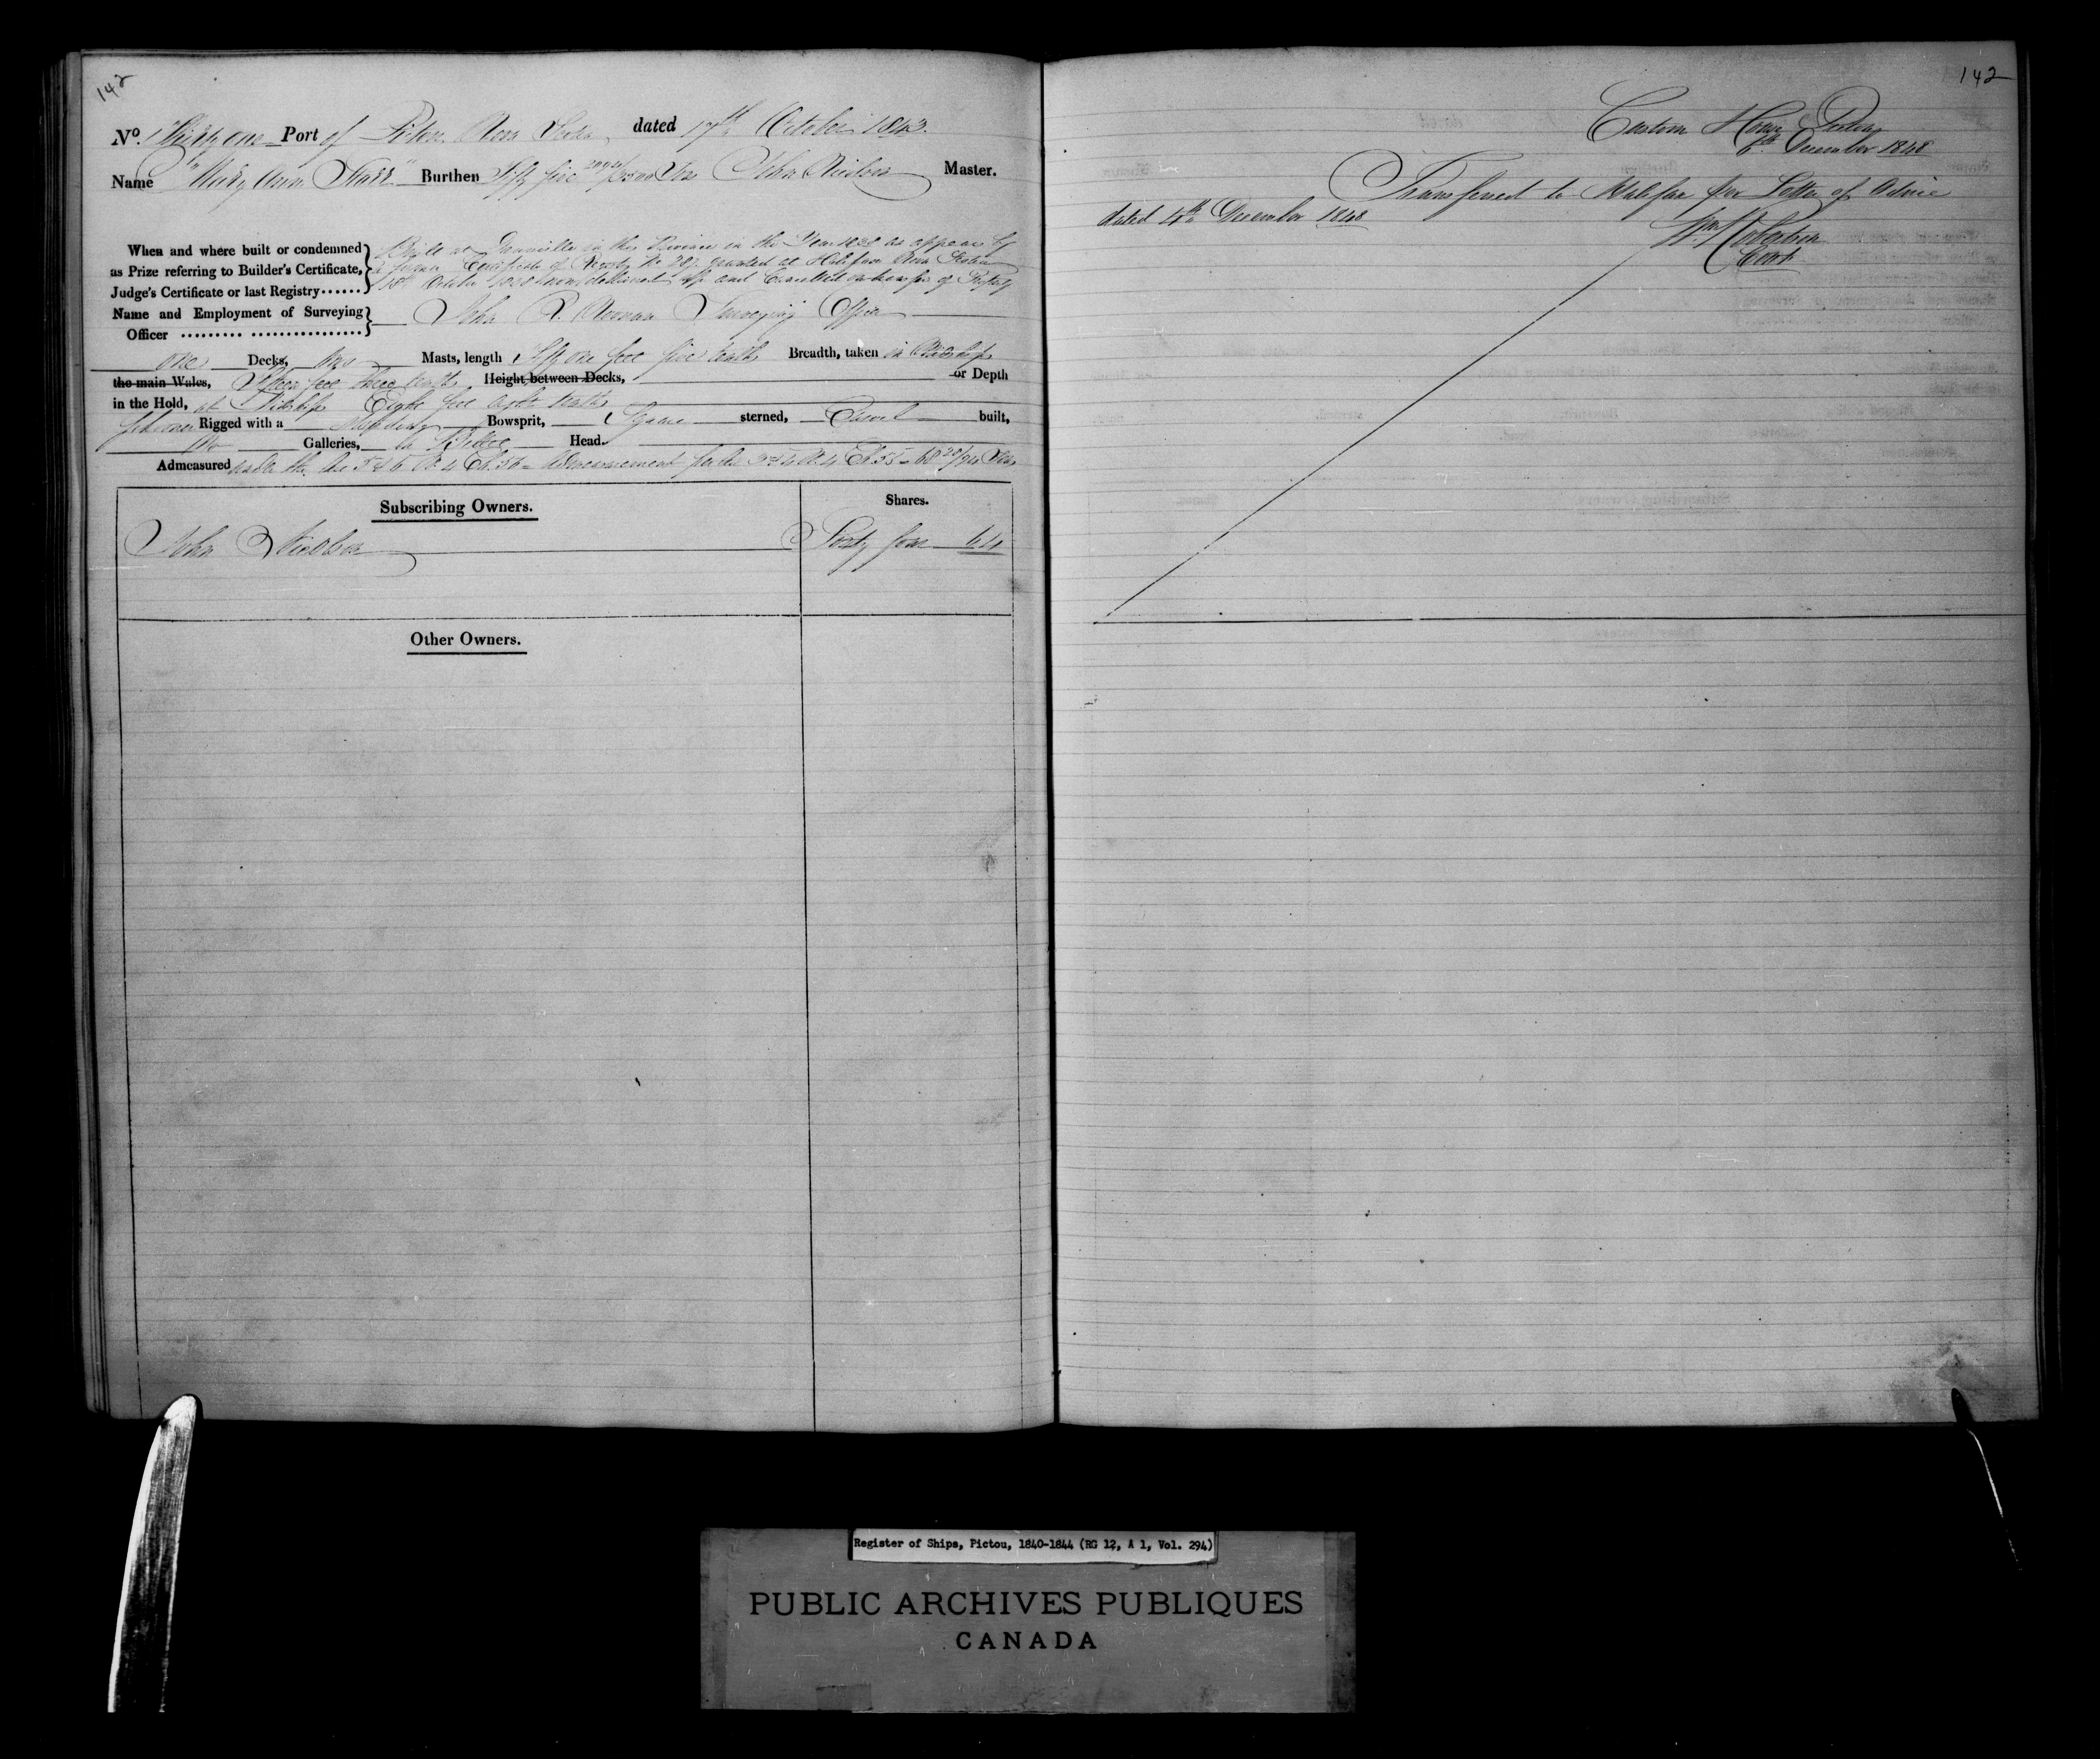 142
142
No. Thirty one Port of Pictou Nova Scotia dated 17th October 1843.
Name "Mary Ann Starr" Burthen Fifty five Tons John Master.
When and where built or condemned
as Prize referring to Builder's Certificate,
Judge's Certificate or last Registry......
Built at in this Province in the Year as appears by
Certificate of Registry No granted at Halifax Nova Scotia
and Cancelled on transfer of
Name and Employment of Surveying
Officer ......... .................
John Noonan Surveying Officer
one Decks, two Masts, length Fifty one feet five tenths Breadth, taken in Midships
the main Wales, feet three tenths Height between Decks, or Depth
in the Hold, at Midships Eight feet eight tenths
Schooner Rigged with a standing Bowsprit, Square sterned, Carvel built,
No Galleries, a Billet Head.
Admeasured under the 5 & 6 Admeasurement per Tons
Subscribing Owners.
Shares.
John
Sixty four 64
Other Owners.
Custom House Pictou
6th December 1848
Transferred to Halifax per Letter of Advice
dated 4th December 1848
Wm Robertson
Register of Ships, Pictou, 1840-1844 (RG 12, A 1, Vol. 294)
PUBLIC ARCHIVES PUBLIQUES
CANADA